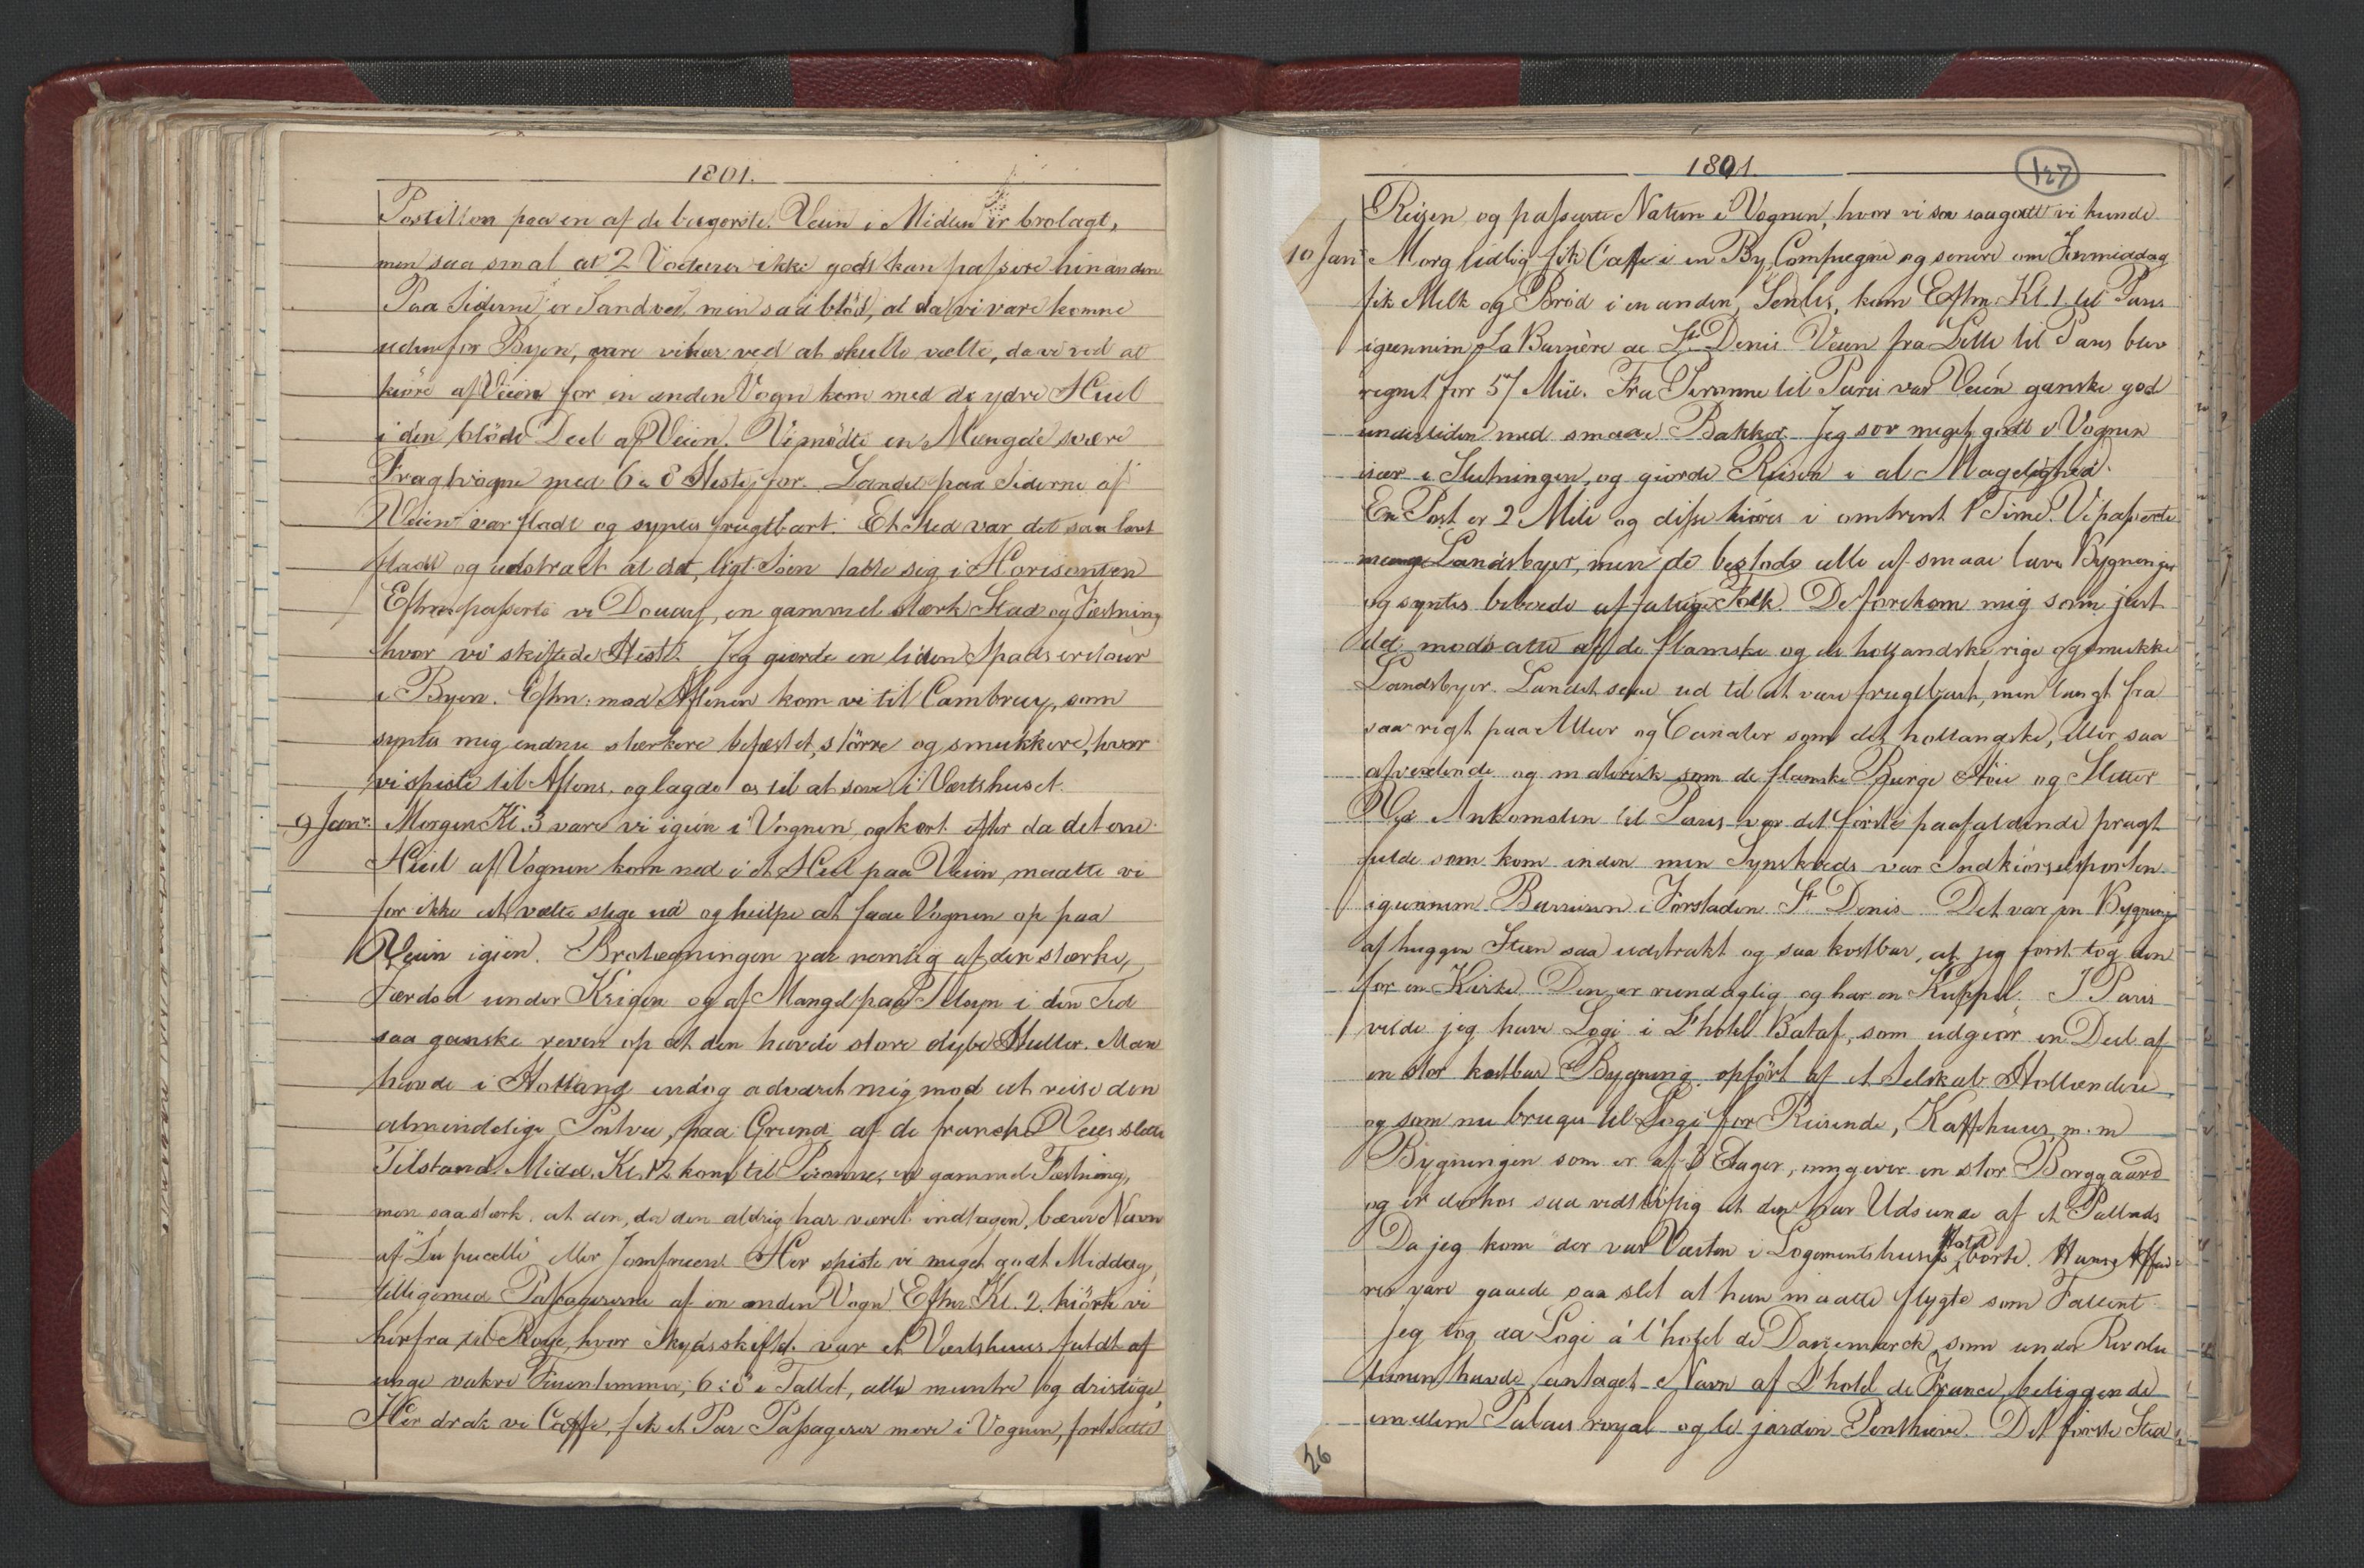 1801.
Postillon paa en af de bagerste. Veien i Midten er brolagt,
men saa smal at 2 Vogner ikke godt kan passere hinanden
Paa Siderne er Sandvei, men saa blöd, at da vi vare komne
udenfor Byen, vare vi nær ved at skulle vælte, da vi ved at
kiøre af Veien for en anden Vogn kom med de ydre Hiul
i den blöde Deel af Veien. Vi mödte en Mængde svære
Fragtvogne med 6 a 8 Heste for. Landet paa Siderne af
Veien var fladt og syntes frugtbart. Et Sted var det saa lavt
fladt og udstrakt at det, ligt Söen tabte sig i Horisonten
Eftm. passerte vi Douay, en gammel stærk Stad og Fæstning
hvor vi skiftede Heste. Jeg giorde en liden Spadseretour
i Byen. Eftm. mod Aftenen kom vi til Cambray, som
syntes mig endnu stærkere befæstet, större og smukkere, hvor
vi spiste til Aftens, og lagde os til at sove i Værtshuset.
9 Janr. Morgen Kl. 3 vare vi igien i Vognen, og kort efter da det ene
Hiul af Vognen kom ned i et Hul paa Veien, maatte vi
for ikke at vælte stige ud og hielpe at faae Vognen op paa
Veien igien. Brolægningen var nemlig af den stærke
Færdsel under Krigen og af Mangel paa Tilsyn i den Tid
saa ganske reven op at den havde store dybe Huller. Man
havde i Holland endog advaret mig mod at reise den
almindelige Postvei, paa Grund af de franske Veies slette
Tilstand. Midd. Kl. 12 kom til Peronne, en gammel Fæstning,
men saa stærk, at den, da den aldrig har været indtagen, bærer Navn
af "La pucelle" eller Jomfruen. Her spiste vi meget godt Middag,
tilligemed Passagererne af en anden Vogn. Eftm. Kl. 2. kiörte vi
herfra til Roye, hvor Skydsskiftet var et Værtshuus fuldt af
unge vakre Fruentimmer, 6 i 8 i Tallet, alle muntre og dristige,
Her drak vi Caffe, fik et Par Passagerer mere i Vognen, fortsatte
1801.
127
Reisen og passerte Natten i Vognen, hvor vi sov saa godt vi kunde
10 Janr Morg tidlig fik Caffe i en By, Compiegne og senere om Formiddag
fik Melk og Bröd i en anden, Senlis, kom Eftm. Kl. 1. til Paris
igiennem La Barrière de St. Denis. Veien fra Lille til Paris blev
regnet for 57 Mile. Fra Peronne til Paris var Veien ganske god
undertiden med smaae Bakker. Jeg sov meget godt i Vognen
især i Slutningen, og giorde Reisen i al Magelighed.
En Post er 2 Mile og disse kiöres i omtrent 1 Time. Vi passerte
mange Landsbyer, men de bestode alle af smaae lave Bygninger
og syntes beboede af fattige Folk. De forekom mig som just
det modsatte af de flamske og de hollandske rige og smukke
Landsbyer. Landet saae ud til at være frugtbart, men langt fra
saa rigt paa Alleer og Canaler som det hollandske, eller saa
afvexlende og malerisk som de flamske Bierge Höie og Sletter
Ved Ankomsten til Paris var det förste paafaldende pragt
fulde som kom inden min Synskreds var Indkiörselsporten
igiennem Barrieren i Forstaden St Denis. Det var en Bygning
af huggen Steen saa udstrakt og saa kostbar, at jeg först tog den
for en Kirke. Den er rundagtig og har en Kuppel. I Paris
vilde jeg have Logi i L'hotel Bataf, som udgiör en Deel af
en stor kostbar Bygning opfört af et Selskab Hollændere,
og som nu bruges til Logi for Reisende, Kaffehuus, m. m
Bygningen som er af 3 Etager, omgiver en stor Borggaard
og er derhos saa vidtlöftig at den har Udseende af et Pallads
Da jeg kom der var Værten i Logementshuset Hotel borte. Hans Affai
rer vare gaaede saa slet at han maatte flygte som Fallent.
Jeg tog da Logi á l'hotel de Danemarck som under Revolu
tionen havde antaget Navn af L'hotel de France, beliggende
imellem Palais royal og le jardin Penthieve. Det förste Sted
26